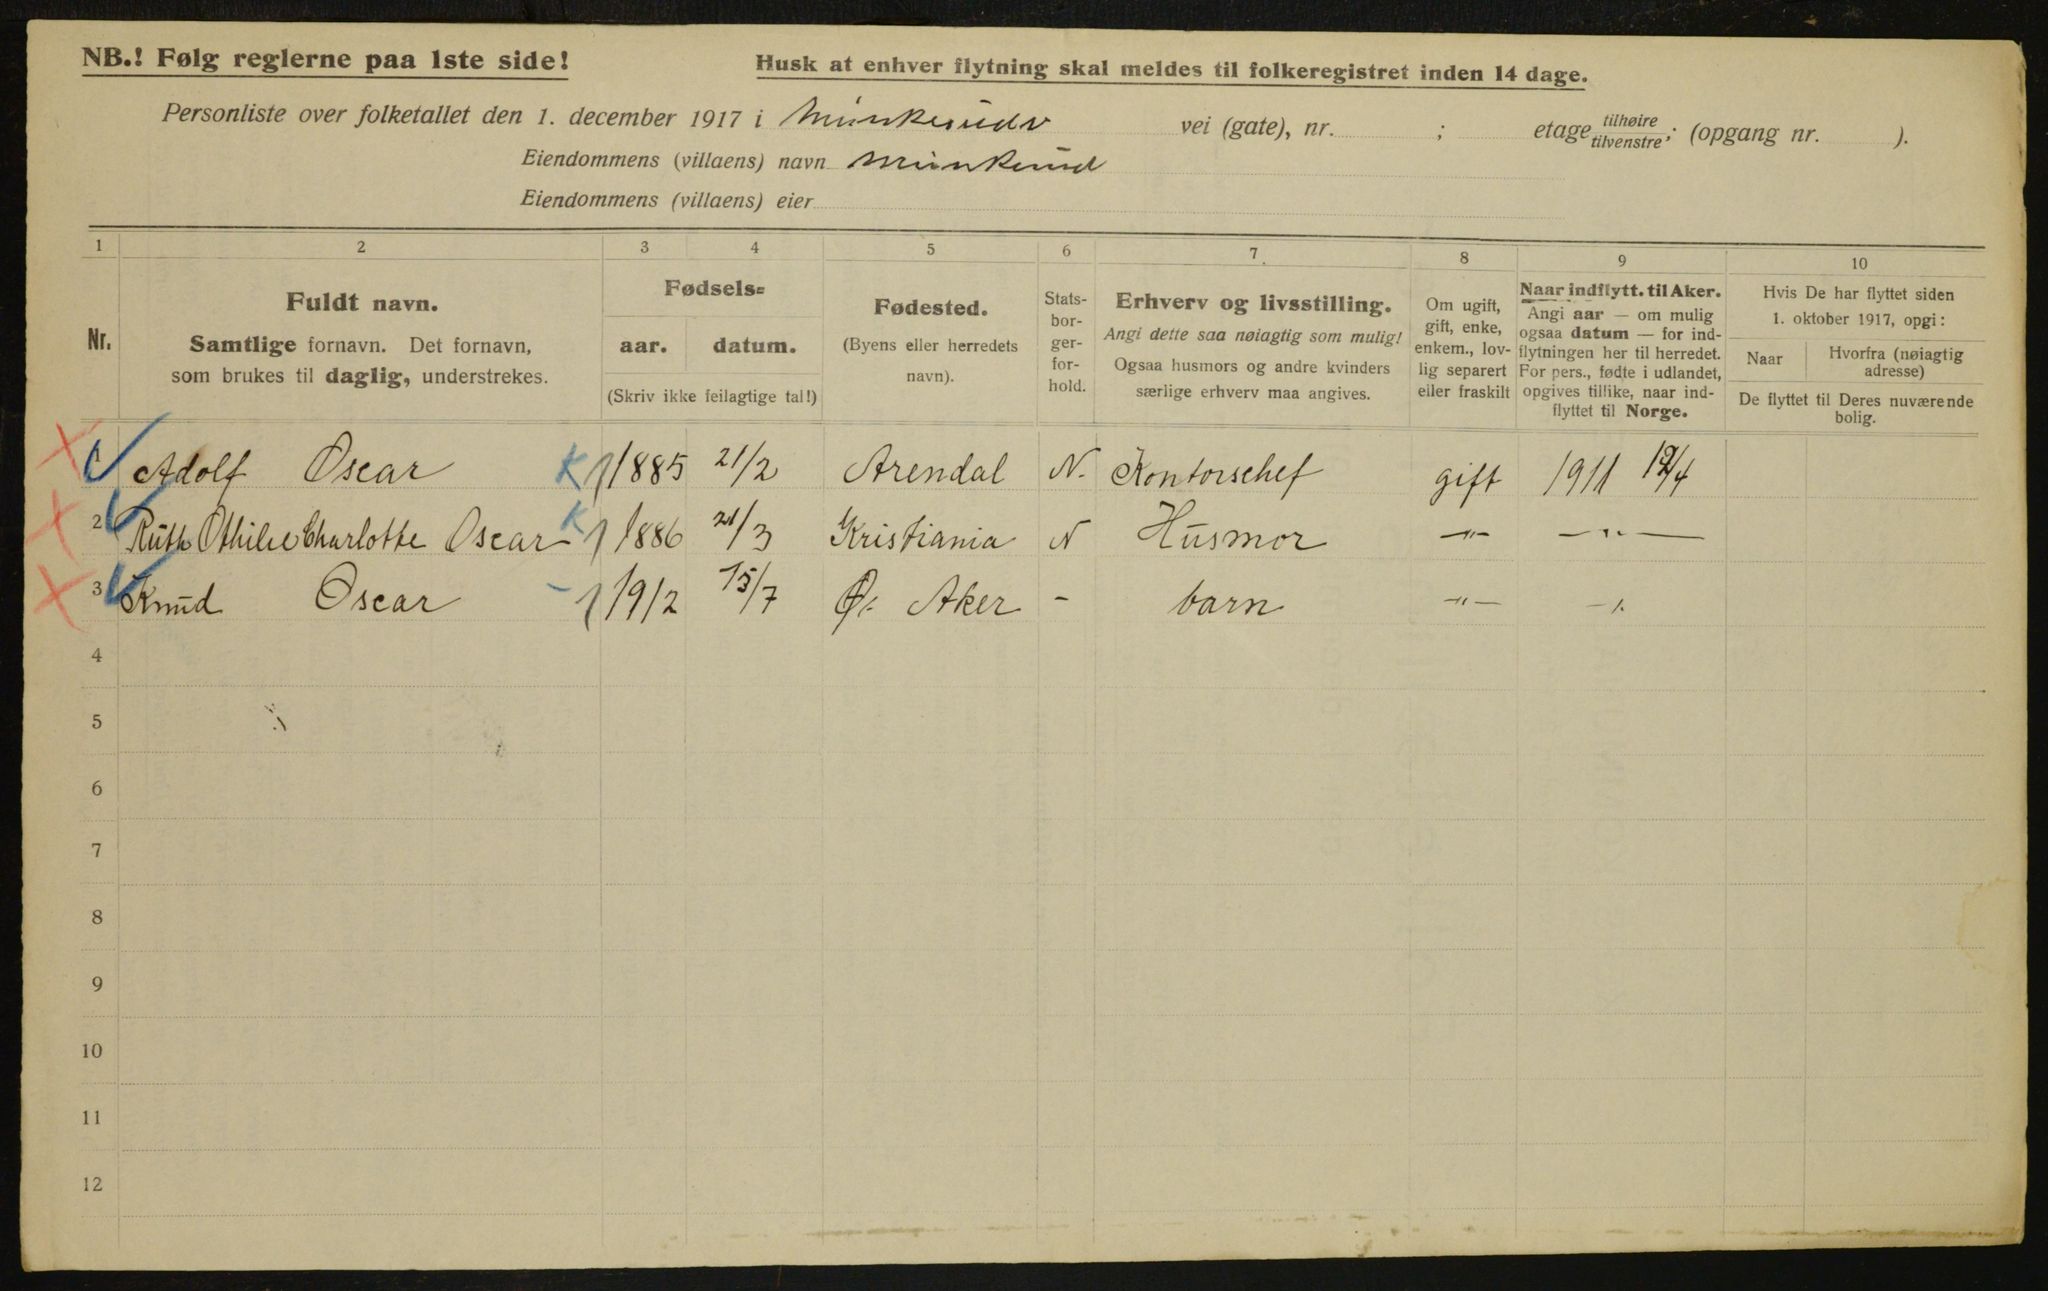 NB.! Følg reglerne paa 1ste side!
Husk at enhver flytning skal meldes til folkeregistret inden 14 dage.
Personliste over folketallet den 1. december 1917 i Munkerudv vei (gate), nr. ; etage tilhøire/tilvenstre; (opgang nr. ).
Eiendommens (villaens) navn Munkerud
Eiendommens (villaens) eier
1 2 3 4 5 6 7. 8 9 10
Nr.
Fuldt navn.
Samtlige fornavn. Det fornavn,
som brukes til daglig, understrekes.
Fødsels=
aar. datum.
(Skriv ikke feilagtige tal!)
Fødested.
(Byens eller herredets
navn).
Stats-
bor-
ger-
for-
hold.
Erhverv og livsstilling.
Angi dette saa nøiagtig som mulig!
Ogsaa husmors og andre kvinders
særlige erhverv maa angives.
Om ugift,
gift, enke,
enkem., lov-
lig separert
eller fraskilt
Naar indflytt. til Aker.
Angi aar — om mulig
ogsaa datum — for ind-
flytningen her til herredet.
For pers., fødte i udlandet,
opgives tillike, naar ind-
flyttet til Norge.
Hvis De har flyttet siden
1. oktober 1917, opgi:
Naar
Hvorfra (nøiagtig
adresse)
De flyttet til Deres nuværende
bolig.
1 Adolf Oscar K 1885 21/2 Arendal N. Kontorschef gift 1911
2 Ruth Othilie Charlotte Oscar K 1886 21/3 Kristiania N Husmor —"— —"—
3 Knud Oscar - 1912 15/7 Ø. Aker - barn —"— —"
4
5
6
7
8
9
10
11
12